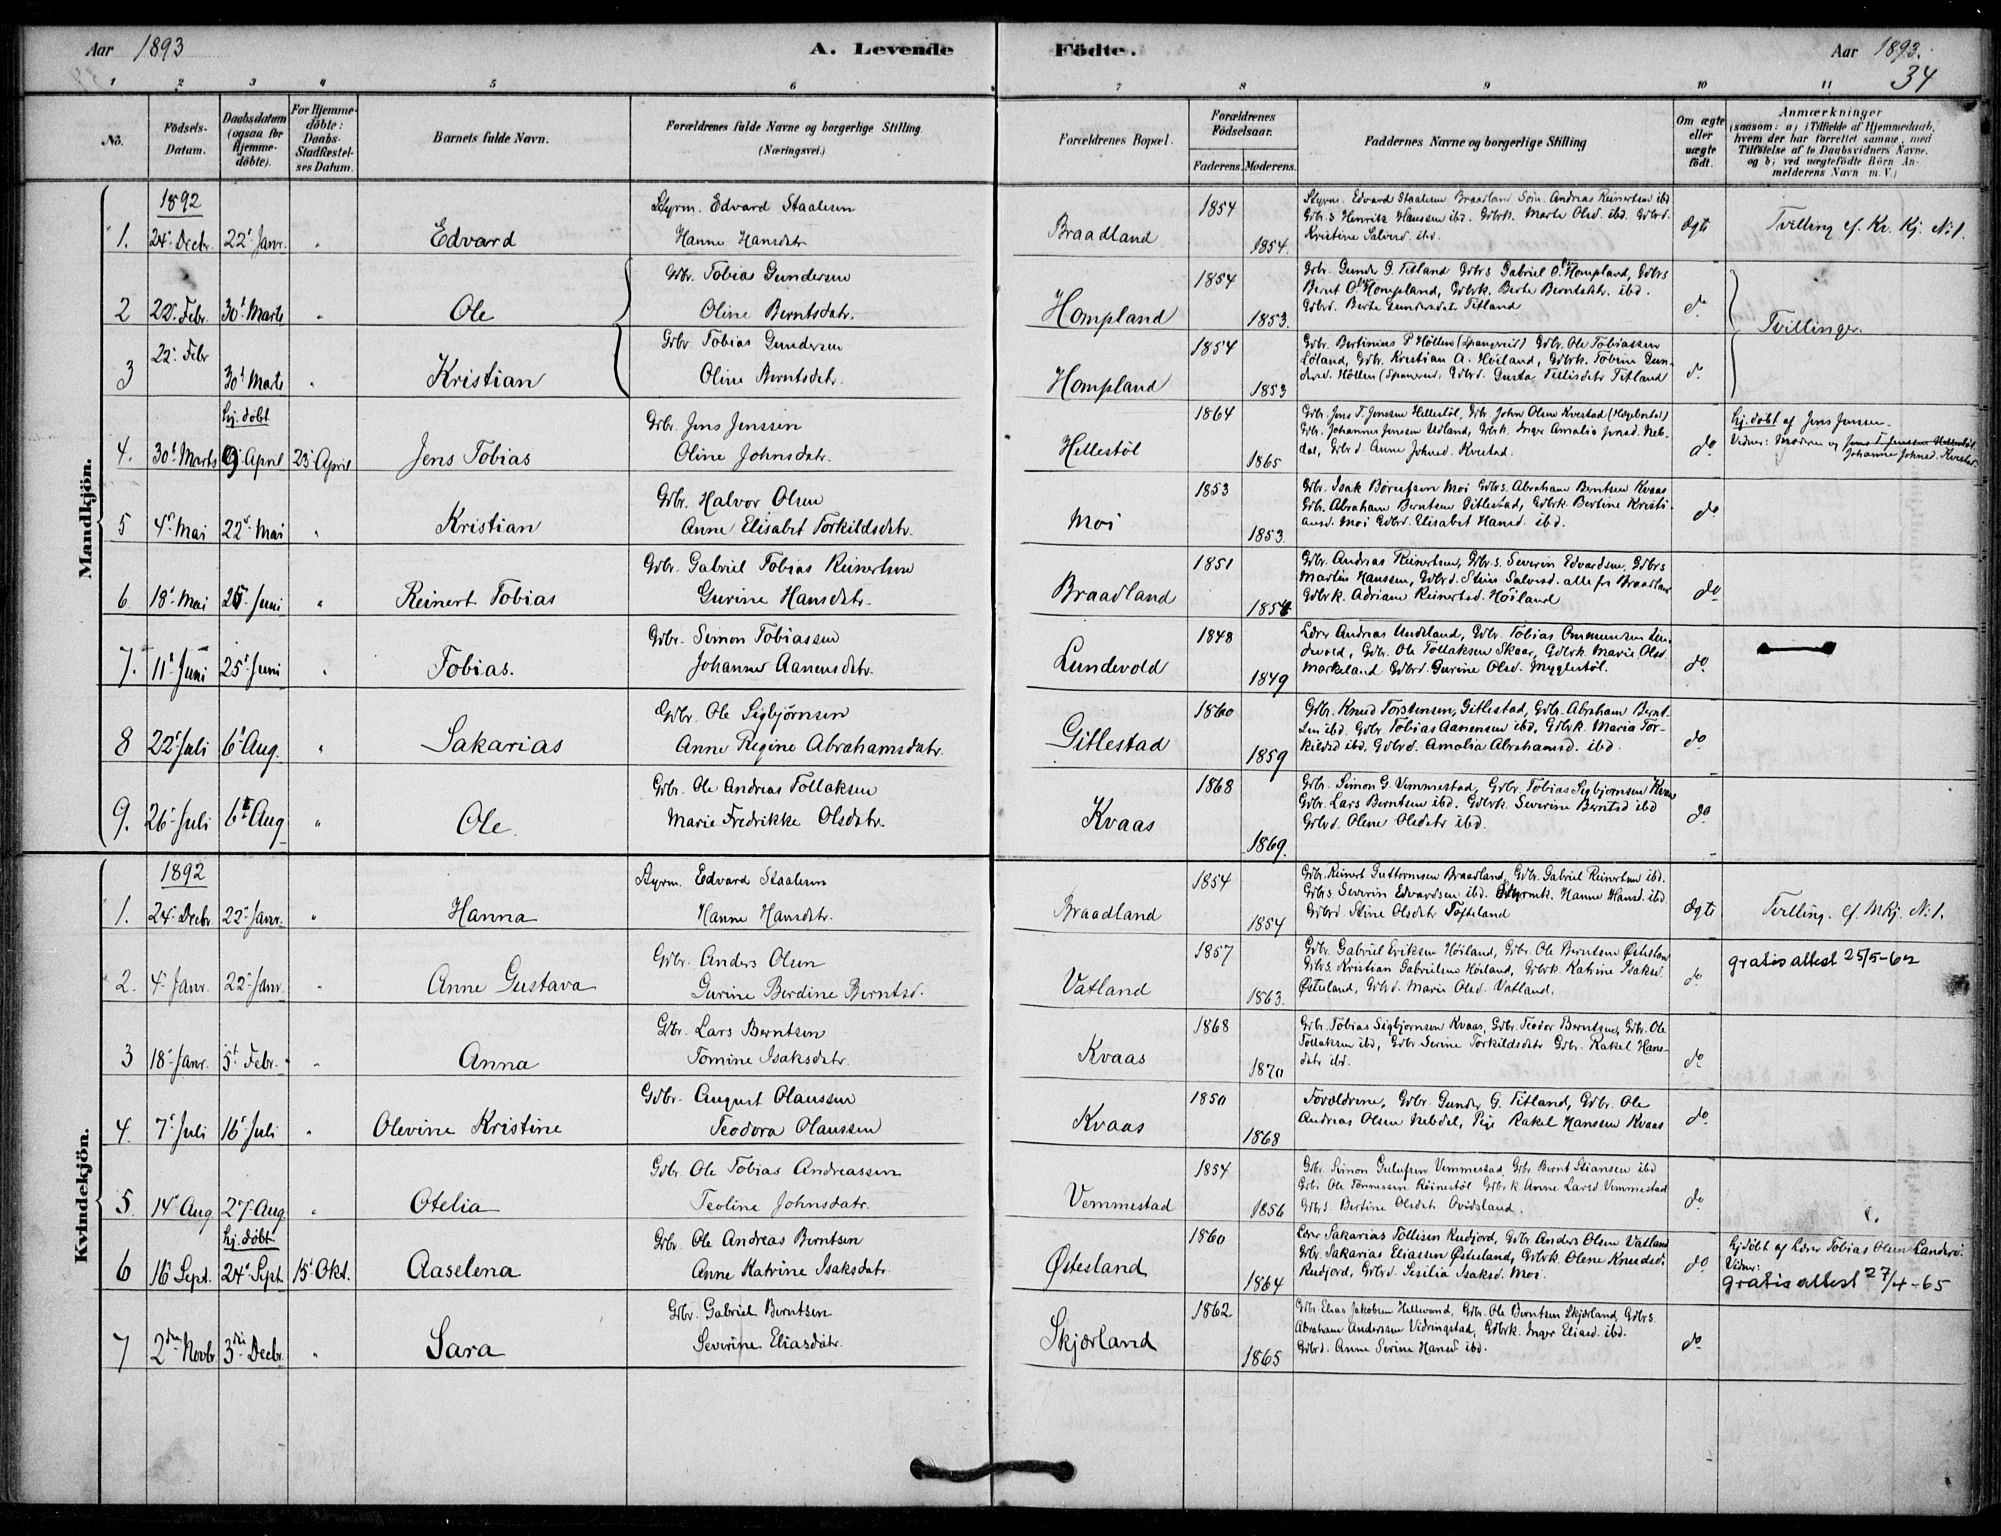 Aar 1893
A. Levende Födte.
Aar 1893.
34
1 2 3 4 5 6 7 8 9 10 11
No.
Födsels-Datum.
Daabsdatum (ogsaa for Hjemme-döbte).
For Hjemme-döbte: Daabs-Stadfæstel-ses Datum.
Barnets fulde Navn.
Forældrenes fulde Navne og borgerlige Stilling (Næringsvei.)
Forældrenes Bopæl.
Forældrenes Födselsaar.
Faderens. Moderens.
Faddernes Navne og borgerlige Stilling
Om ægte eller uægte födt.
Anmærkninger
(saasom: a) i Tilfælde af Hjemmedaab, hvem der har forrettet samme, med Tilföielse af to Daabsvidners Navne, og b) ved uægtefödte Börn An-melderens Navn m. V.)
Mandkjön.
1892
1. 24 Decbr. 22 Janr. " Edvard
Styrm. Edvard Staalesen
Hanne Hansdatr.
Braadland 1854 1854.
Styrm. Edvard Staalesen Braadland Søn. Andreas Reinertsen ibd
Gdbr.s Henrik Hanssen ibd. Gdbrk. Marte Olsd. ibd. Gdbrd.
Kristine Salvesd. ibd.
Ægte
Tvilling cf. Kv. Kj. N: 1.
2 22 Febr. 30 Marts " Ole
Gdbr. Tobias Gundersen
Oline Berntsdatr.
Hompland 1854 1853.
Gdbr. Gunder G. Titland Gdbrs Gabriel O. Hompland, Gdbrs
Bernt O Hompland, Gdbrk. Berte Berntsdtr. ibd.
Gdbrd. Berte Gundersdatr Titland
do
Tvillinger.
3 22 Febr 30 Marts " Kristian
Gdbr Tobias Gundersen
Oline Berntsdatr.
Hompland 1854 1853
Gdbr. Bertinius P Høllen (Spangreid) Gdbr. Ole Tobiassen
Løland, Gdbr. Kristian A. Høiland, Gdbrk. Tobine Gun-
dersd. Høllen (Spangreid, Gdbrd. Gusta Tellisdatr Titland
do
hj. døbt
4. 30 Marts 9 April 23 April Jens Tobias
Gdbr. Jens Jenssen
Oline Johnsdatr.
Hellestøl 1864 1865
Gdbr. Jens T. Jenssen Hellestøl, Gdbr. John Olsen Kvestad (Hægebostad)
Gdbr. Johannes Jenssen Udland, Gdbrk. Inger Amalia Jensd. Neb-
dal, Gdbrd. Anne Johnsd. Kvestad.
do
hj. døbt af Jens Jenssen.
Vidner: Moderen og Jens T. Jenssen Hellestøl
Johanne Johnsd. Kvestad.
5 4 Mai 22 Mai " Kristian
Gdbr. Halvor Olsen
Anne Elisabet Torkildsdatr.
Moi 1853 1853.
Gdbr. Isak Børufsen Moi Gdbrs. Abraham Berntsen Kvaas
Gdbr. Abraham Berntsen Gitlestad, Gdbrk Bertine Kristi-
ansd. Moi Gdbrd. Elisabet Hansd. ibd.
do
6 18 Mai 25 Juni " Reinert Tobias
Gdbr. Gabriel Tobias Reinertsen
Gurine Hansdatr.
Braadland 1851 1854
Gdbr. Andreas Reinertsen, Gdbr.s. Severin Edvardsen, Gdbrs
Martin Hanssen, Gdbrd. Stine Salvesd. alle fr Braadland
Gdbrk. Adriane Reinertsd. Høiland
do
7. 11 Juni 25 Juni " Tobias.
Gdbr. Simon Tobiassen
Johanne Aanensdatr.
Lundevold 1848 1849
Lærer Andreas Undeland, Gdbr. Tobias Ommundsen Lun-
devold, Gdbr. Ole Tollaksen Skaar, Gdbrk Marie Olsd.
Markeland Gdbrd. Gurine Olsd. Myglestøl.
do
8 22 Juli 6 Aug. " Sakarias
Gdbr. Ole Sigbjørnsen
Anne Regine Abrahamsdatr.
Gitlestad 1860 1859
Gdbr. Knud Torstensen, Gitlestad, Gdbr. Abraham Bernt-
sen ibd. Gdbr Tobias Aanensen ibd. Gdbrk. Maria Tor-
kildsd ibd, Gdbrd. Amalia Abrahamsd. ibd.
do
9. 26 Juli 6t Aug " Ole.
Gdbr. Ole Andreas Tollaksen
Marie Fredrikke Olsdatr.
Kvaas 1868 1869.
Gdbr. Simon G. Vemmestad, Gdbr. Tobias Sigbjørnsen Kvaas
Gdbr. Lars Berntsen ibd. Gdbrk. Severine Berntsd ibd
Gdbrd. Olene Olsdatr ibd.
do
Kvindekjön.
1892
1. 24 Decbr 22 Janr. " Hanna
Styrm. Edvard Staalesen
Hanne Hansdtr.
Braadland 1854 1854
Gdbr. Reinert Guttormsen Braadland, Gdbr. Gabriel Reinertsen ibd.
Gdbrs. Severin Edvardsen ibd. Styrmk. Hanne Hansd. ibd
Gdbrd Stine Olsdatr Tofteland
Ægte
Tvilling. cf. Mkj. N: 1.
2. 4 Janr. 22 Janr. " Anne Gustava
Gdbr. Anders Olsen
Gurine Berdine Berntsd.
Vatland 1857 1863.
Gdbr Gabriel Eriksen Høiland, Gdbr. Ole Berntsen Østesland
Gdbrs. Kristian Gabrielsen Høiland, Gdbrk. Katrine Isaksd.
Østesland, Gdbrd. Marie Olsd. Vatland.
do
gratis attest 25/5-62
3 18 Janr. 5t Febr. " Anna
Gdbr. Lars Berntsen
Tomine Isaksdatr.
Kvaas 1868 1870
Gdbr. Tobias Sigbjørnsen Kvaas, Gdbr. Teodor Berntsen, Gdbr. Ole
Tollaksen ibd, Gdbr Serine Torkildsdatr Gdbr. Rakel Hans-
datr ibd.
do
4. 7 Juli 16 Juli " Olevine Kristine
Gdbr. August Olaussen
Teodora Olaussen
Kvaas 1850 1868
Forældrene, Gdbr. Gunder G. Titland, Gdbr. Ole
Andreas Olsen Nebdal, Pige Rakel Hanssen Kvaas
do
5. 14 Aug 27 Aug " Otelia
Gdbr. Ole Tobias Andreassen
Teoline Johnsdatr.
Vemmestad 1854 1856
Gdbr. Simon Gulufsen Vemmestad Gdbr Bernt Stiansen ibd
Gdbr. Ole Tønnessen Reinestøl Gdbrk Anne Larsd Vemmestad
Gdbrd. Bertine Olsdatr Ovidsland.
do
hj. døbt
6 16 Sept. 24 Sept 15 Okt. Aaselena
Gdbr. Ole Andreas Berntsen
Anne Katrine Isaksdatr.
Østesland 1860 1864
Lærer Sakarias Tollisen Rudjord, Gdbr Anders Olsen Vatland
Gdbr. Sakarias Eliassen Østesland, Gdbrk Olene Knudsd.
Rudjord, Gdbrd. Sesilia Isaksd. Moi.
do
hj. døbt af Lærer Tobias Olsen Landerø.
Vidner:
gratis attest 27/4-65
7 2den Novbr 3die Decbr. " Sara
Gdbr. Gabriel Berntsen
Severine Eliasdatr.
Skjærland 1862 1865
Gdbr Elias Jakobsen Hellevand, Gdbr. Ole Berntsen Skjærland, Gdbrs.
Abraham Anderssen Vidringstad, Gdbrk. Inger Eliasd. ibd.
Gdbrd. Anne Serine Hansd ibd.
do